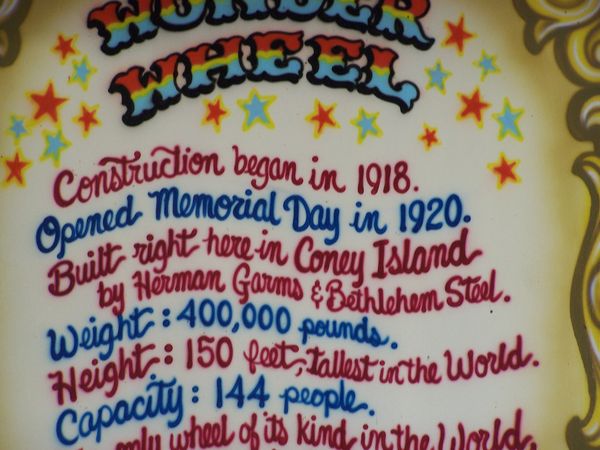 WONDER
WHEEL
Construction began in 1918.
Opened Memorial Day in 1920.
Built right here in Coney Island
by Herman Garms & Bethlehem Steel.
Weight: 400,000 pounds.
Height: 150 feet, tallest in the World.
Capacity: 144 people.
only wheel of its kind in the World,